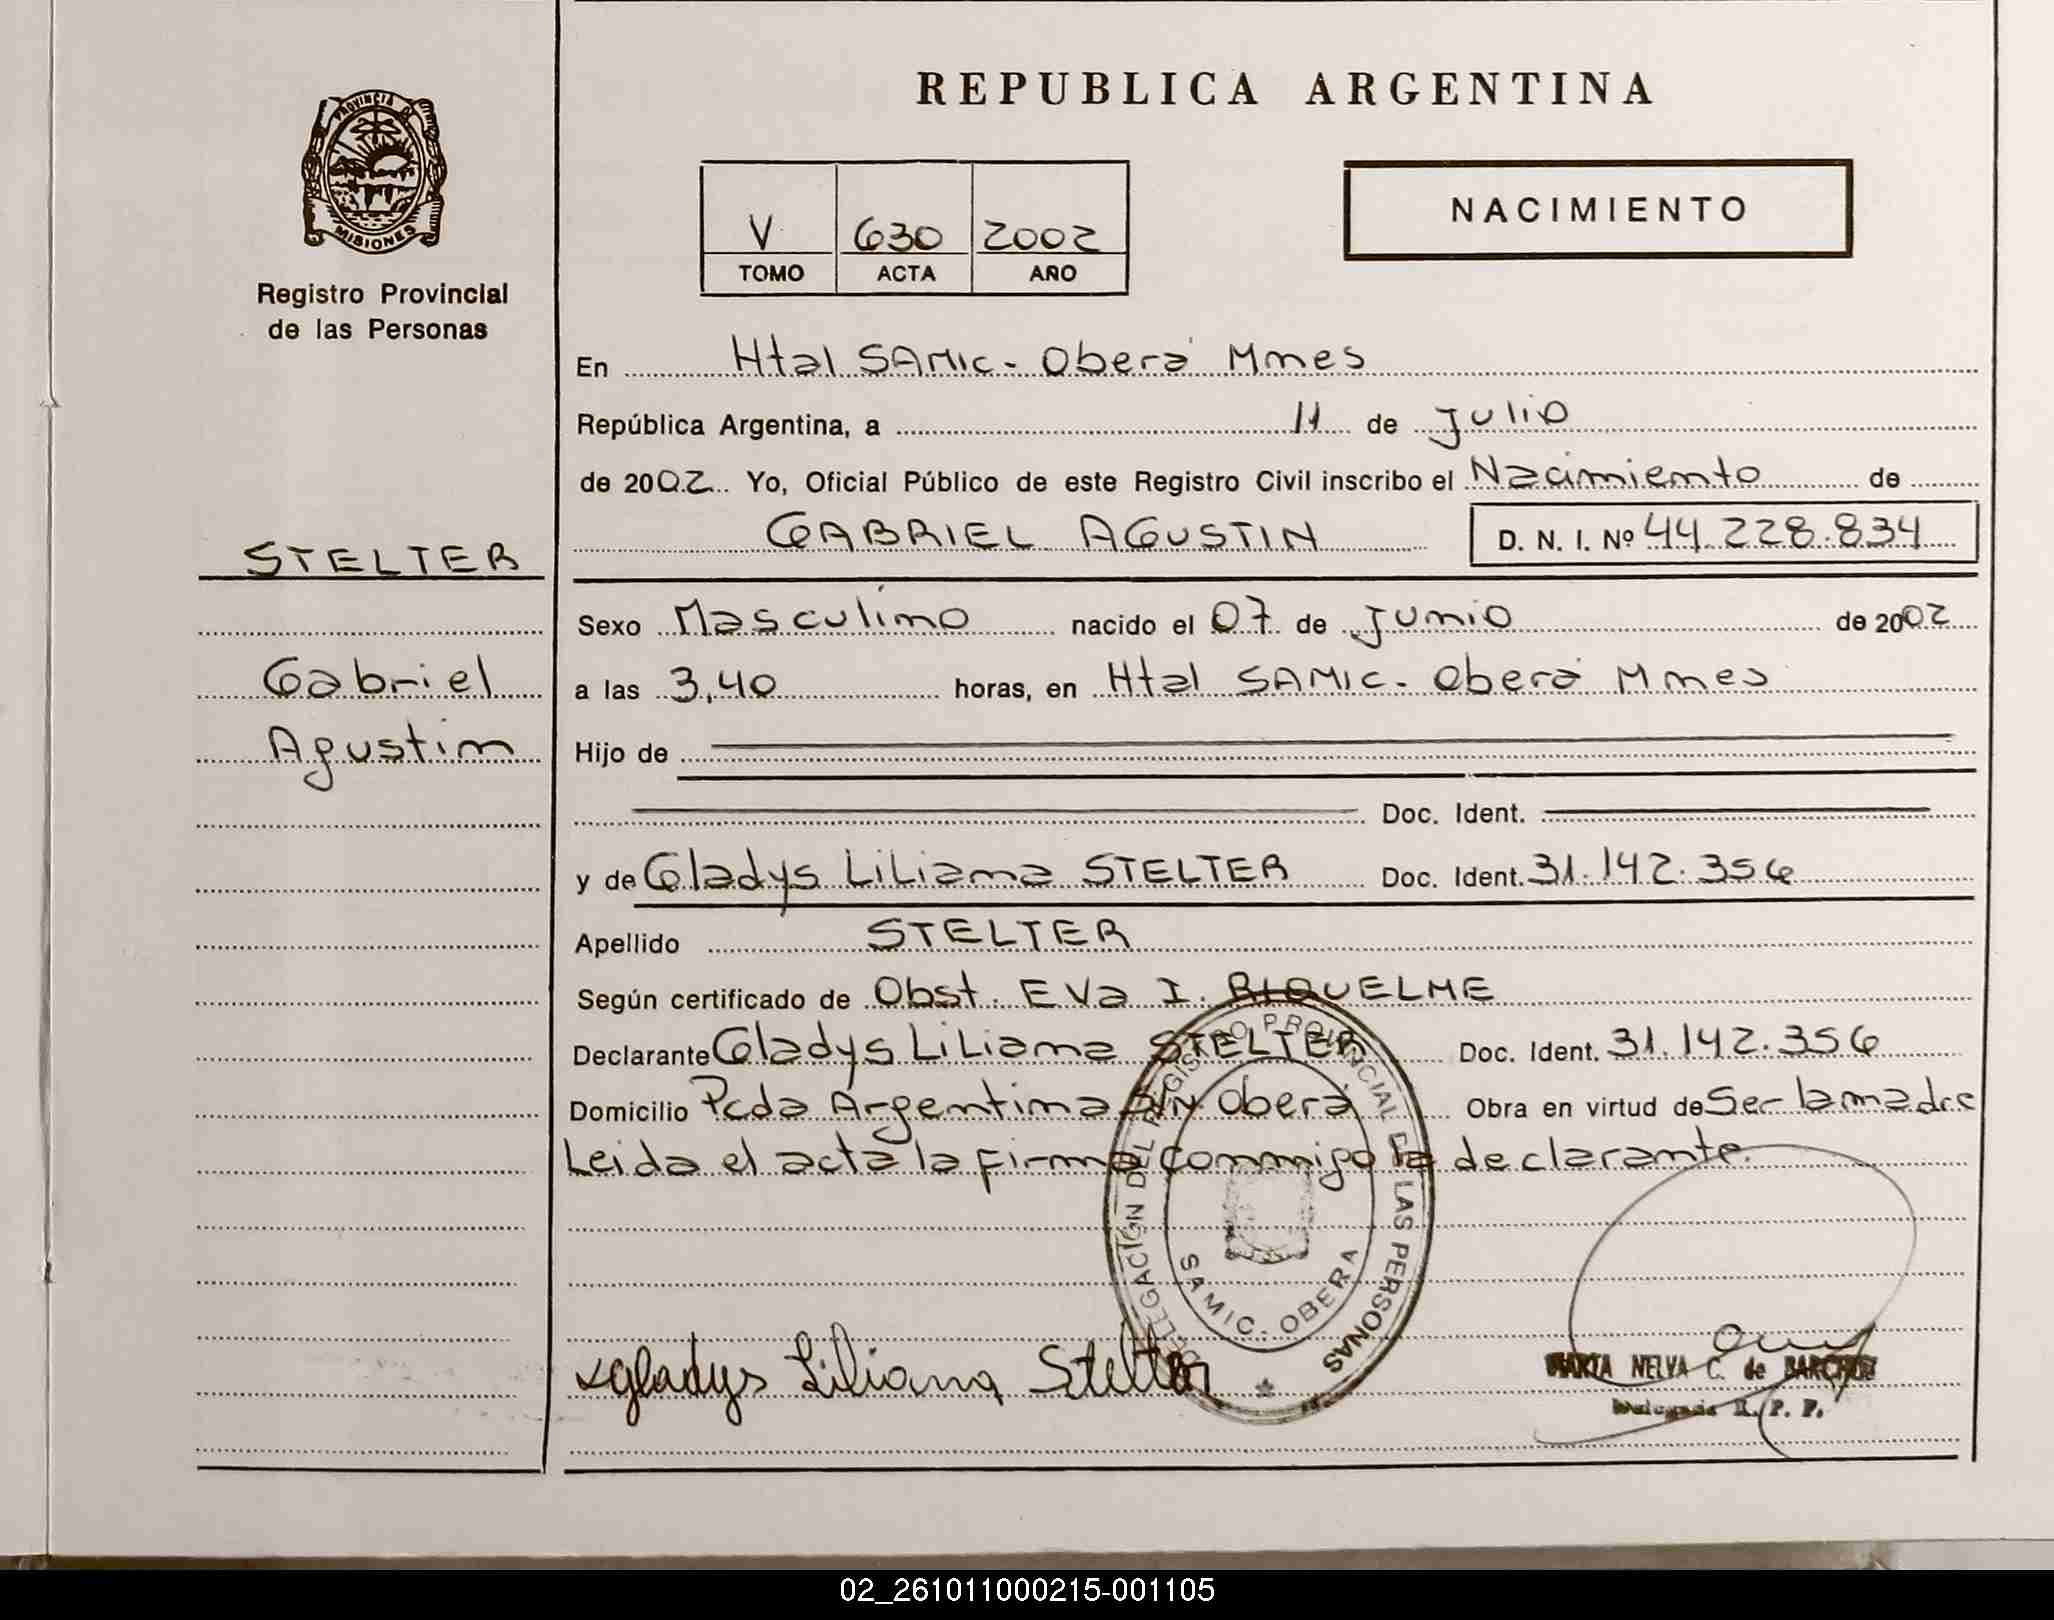 REPUBLICA ARGENTINA
PROVINCIA DE
MISIONES
Registro Provincial
de las Personas
V 630 2002
TOMO ACTA AÑO
NACIMIENTO
En Htal SAMIC - Oberá Mnes
República Argentina, a 11 de Julio
de 2002 Yo, Oficial Público de este Registro Civil inscribo el Nacimiento de
GABRIEL AGUSTIN D. N. I. Nº 44.228.834
STELTER
Gabriel
Agustin
Sexo Masculino nacido el 07 de Junio de 2002
a las 3,40 horas, en Htal SAMIC - Oberá Mnes
Hijo de
Doc. Ident.
y de Gladys Liliana STELTER Doc. Ident. 31.142.356
Apellido STELTER
Según certificado de Obst. Eva I. RIQUELME
Declarante Gladys Liliana STELTER Doc. Ident. 31.142.356
Domicilio Pcda Argentina S/N Oberá Obra en virtud de Ser la madre
Leida el acta la firma conmigo la declarante.
DELEGACIÓN DEL REGISTRO PROVINCIAL DE LAS PERSONAS
SAMIC - OBERA
x gladys Liliana Stelter
MARTA NELVA C. de
R. P. P.
02_261011000215-001105